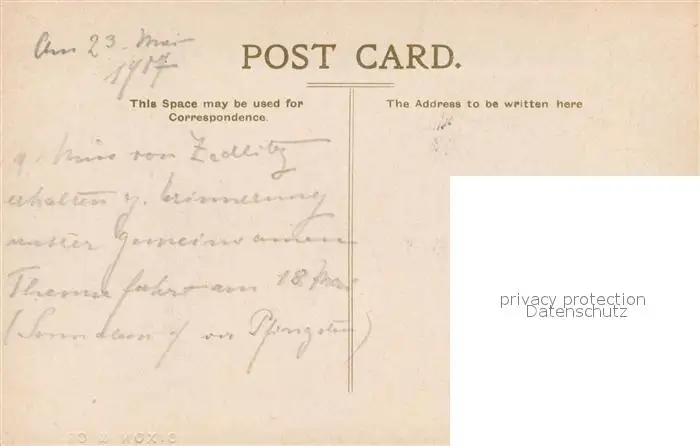 Am 23. Mai
1907
POST CARD.
This Space may be used for
Correspondence.
The Address to be written here
v. Miss von Zedlitz
erhalten z. Erinnerung
unserer gemeinsamen
Themsefahrt am 18 Mai
(Sonnabend vor Pfingsten)
privacy protection
Datenschutz